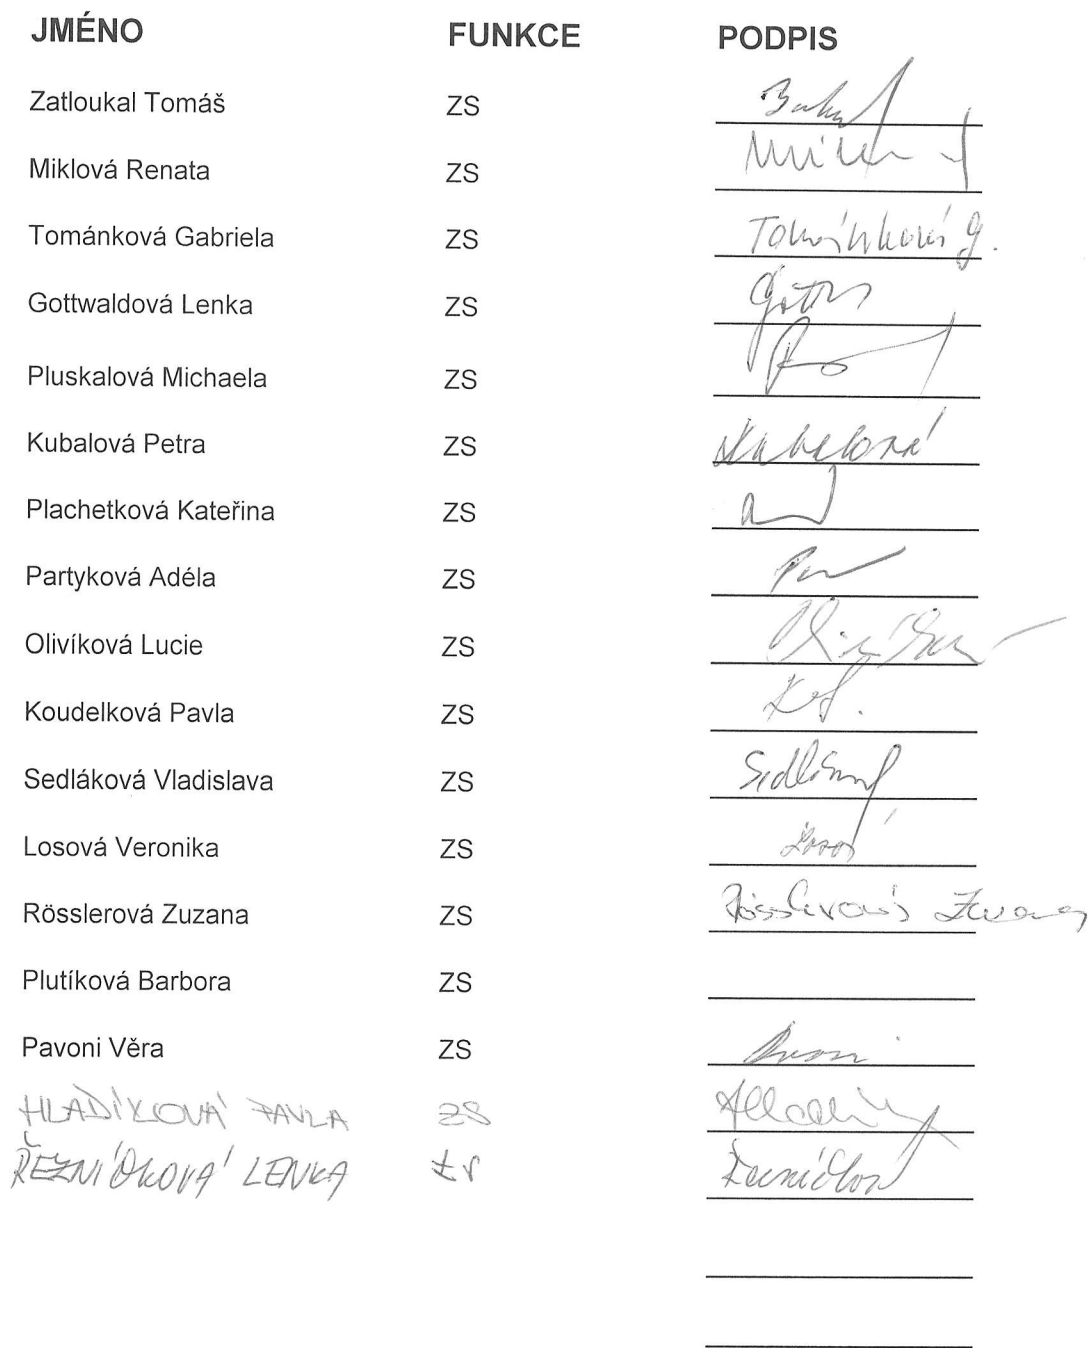 JMÉNO FUNKCE PODPIS
Zatloukal Tomáš ZS
Miklová Renata ZS
Tománková Gabriela ZS Tománková G.
Gottwaldová Lenka ZS
Pluskalová Michaela ZS
Kubalová Petra ZS Kubalová
Plachetková Kateřina ZS
Partyková Adéla ZS
Olivíková Lucie ZS
Koudelková Pavla ZS
Sedláková Vladislava ZS
Losová Veronika ZS Losová
Rösslerová Zuzana ZS Rösslerová Zuzana
Plutíková Barbora ZS
Pavoni Věra ZS Pavoni
HLADÍKOVÁ PAVLA ZS
ŘEZNÍČKOVÁ LENKA ZS